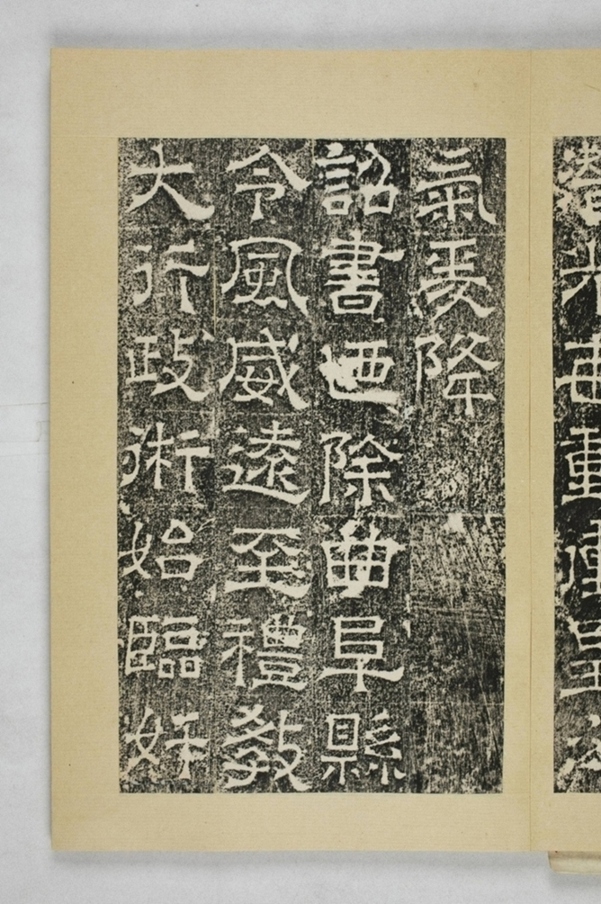 氣爰降
詔書迺除曲阜縣
令風威遠至禮教
大行政術始臨